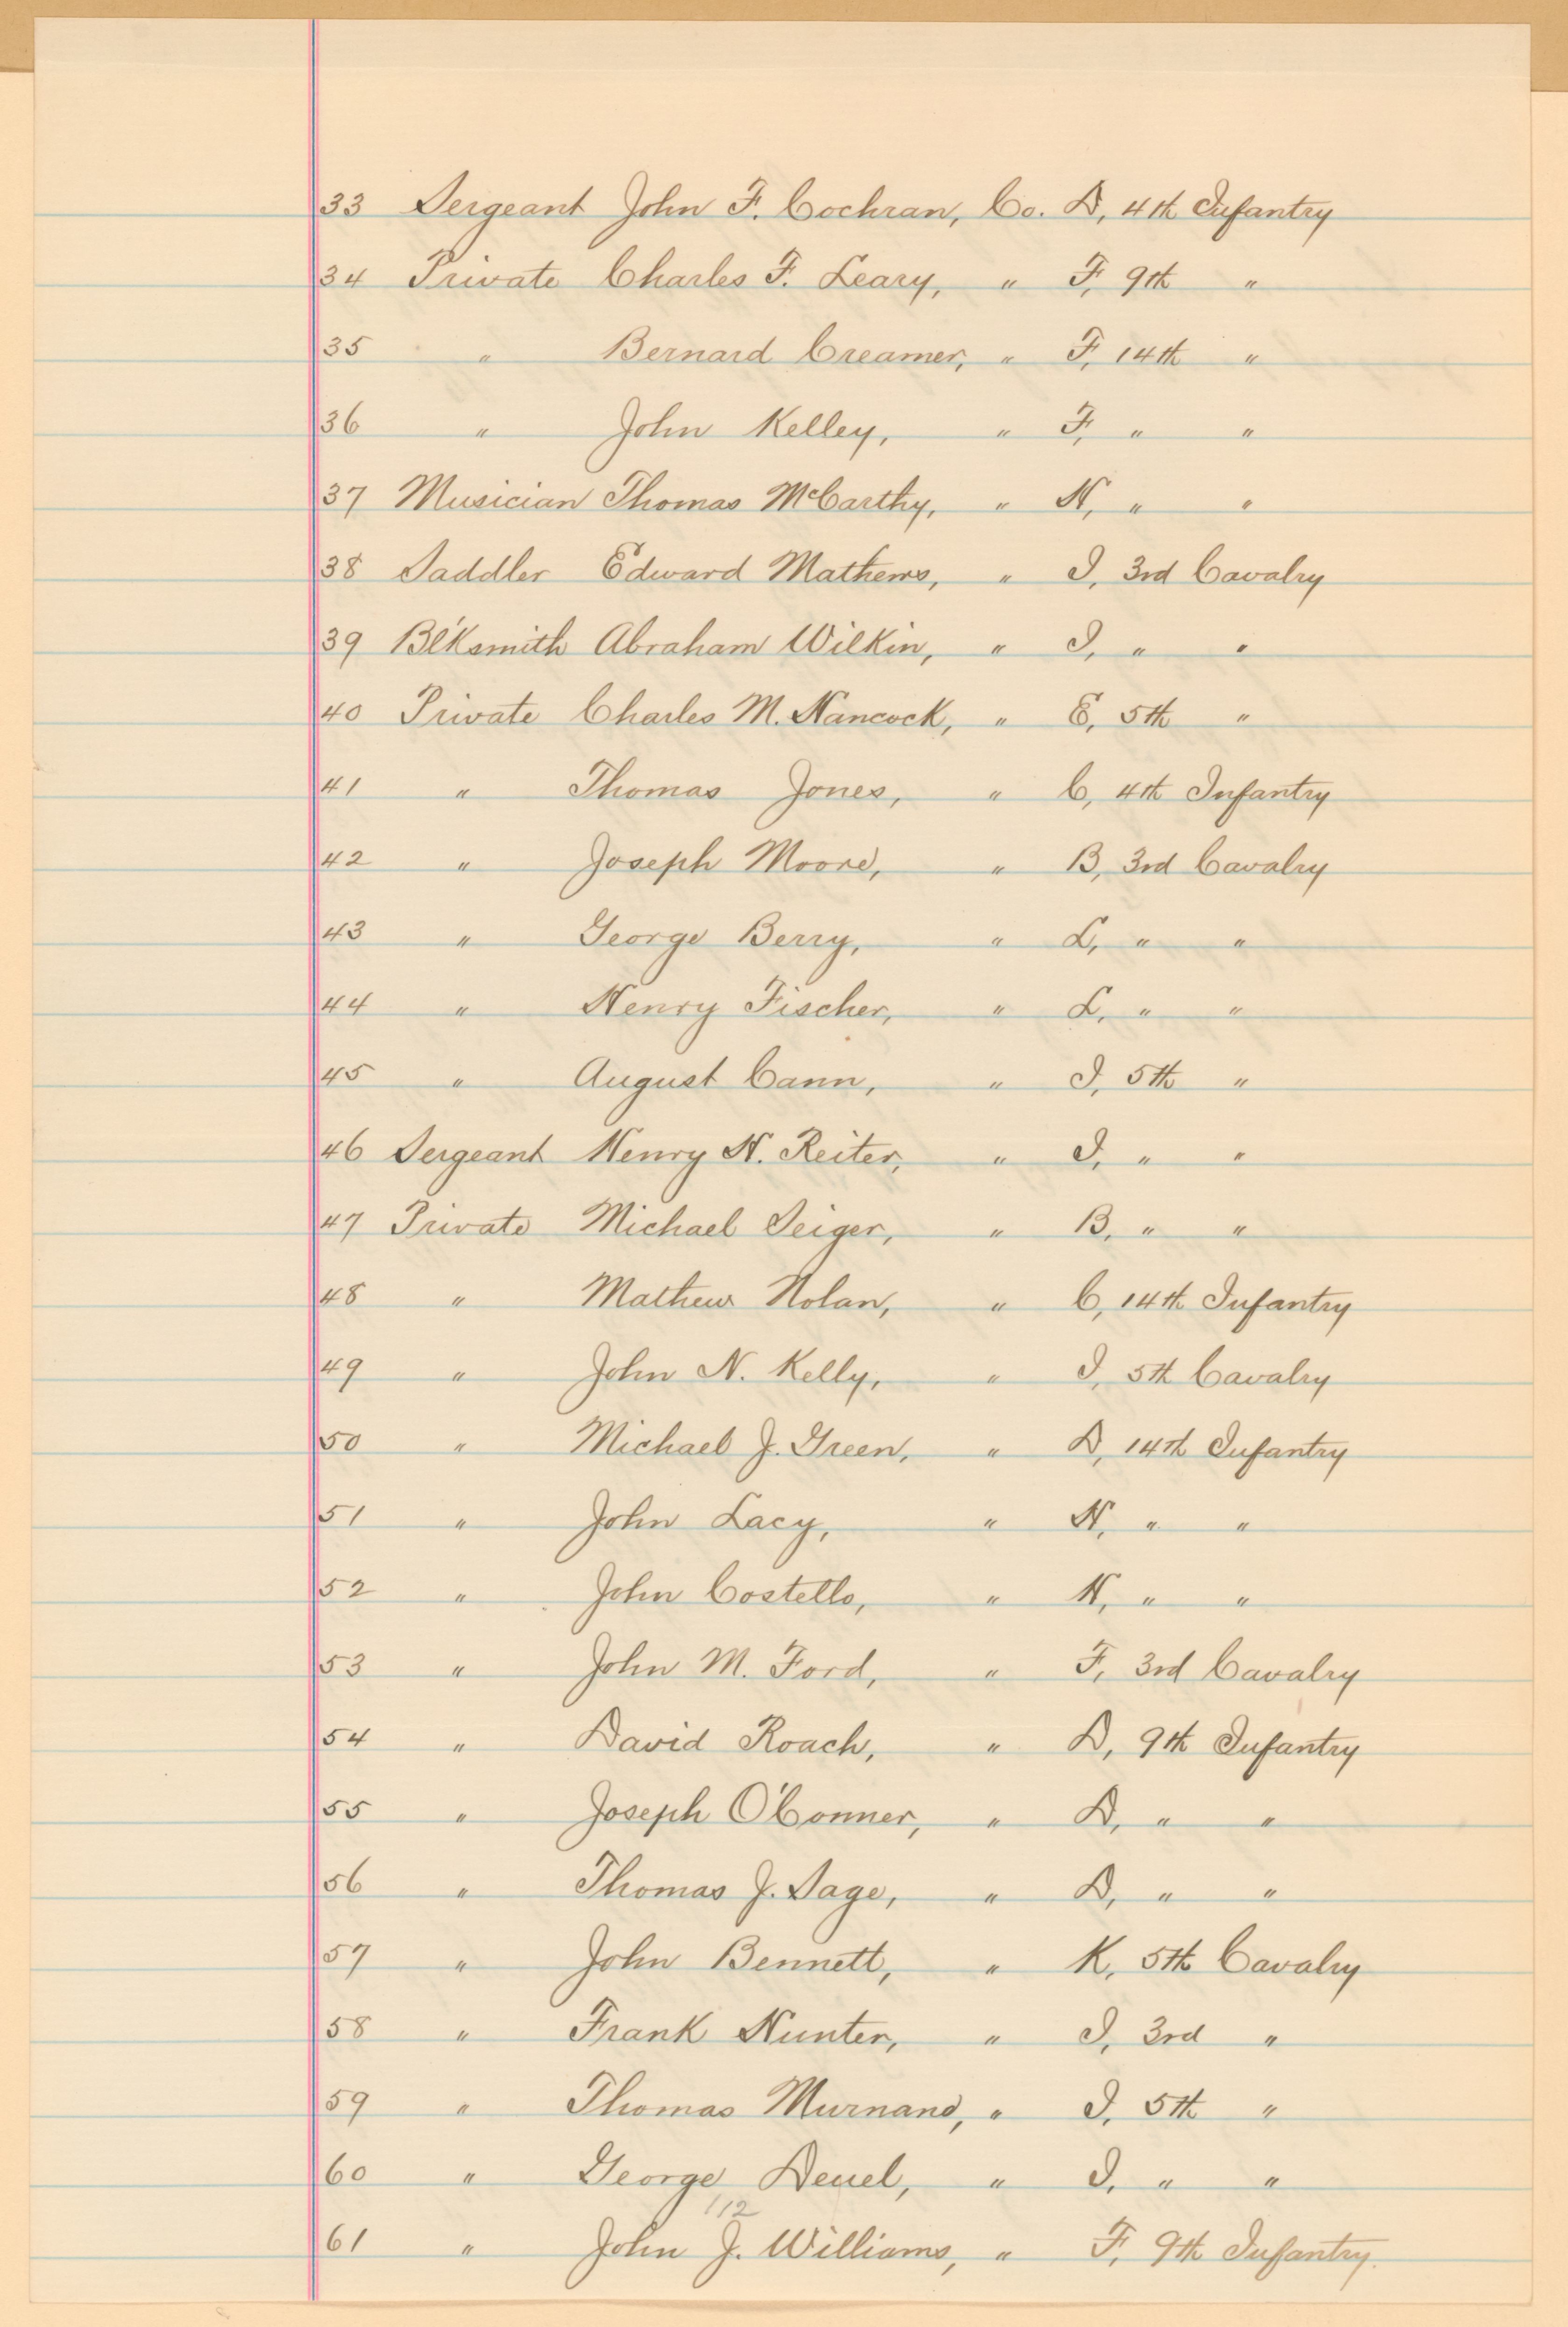 33 Sergeant John F. Cochran, Co. D, 4th Infantry
34 Private Charles F. Leary, " F, 9th "
35 " Bernard Creamer, " F, 14th "
36 " John Kelley, " F, " "
37 Musician Thomas McCarthy, " H, " "
38 Saddler Edward Mathews, " I, 3rd Cavalry
39 Bl'ksmith Abraham Wilkin, " I, " "
40 Private Charles M. Hancock, " E, 5th "
41 " Thomas Jones, " C, 4th Infantry
42 " Joseph Moore, " B, 3rd Cavalry
43 " George Berry, " L, " "
44 " Henry Fischer, " L, " "
45 " August Cann, " I, 5th "
46 Sergeant Henry H. Reiter, " I, " "
47 Private Michael Seiger, " B, " "
48 " Mathew Nolan, " C, 14th Infantry
49 " John N. Kelly, " I, 5th Cavalry
50 " Michael J. Green, " D, 14th Infantry
51 " John Lacy, " H, " "
52 " John Costello, " H, " "
53 " John M. Ford, " F, 3rd Cavalry
54 " David Roach, " D, 9th Infantry
55 " Joseph O'Conner, " D, " "
56 " Thomas J. Sage, " D, " "
57 " John Bennett, " K, 5th Cavalry
58 " Frank Hunter, " I, 3rd "
59 " Thomas Murnane, " I, 5th "
60 " George Deuel, " I, " "
112
61 " John J. Williams, " F, 9th Infantry.